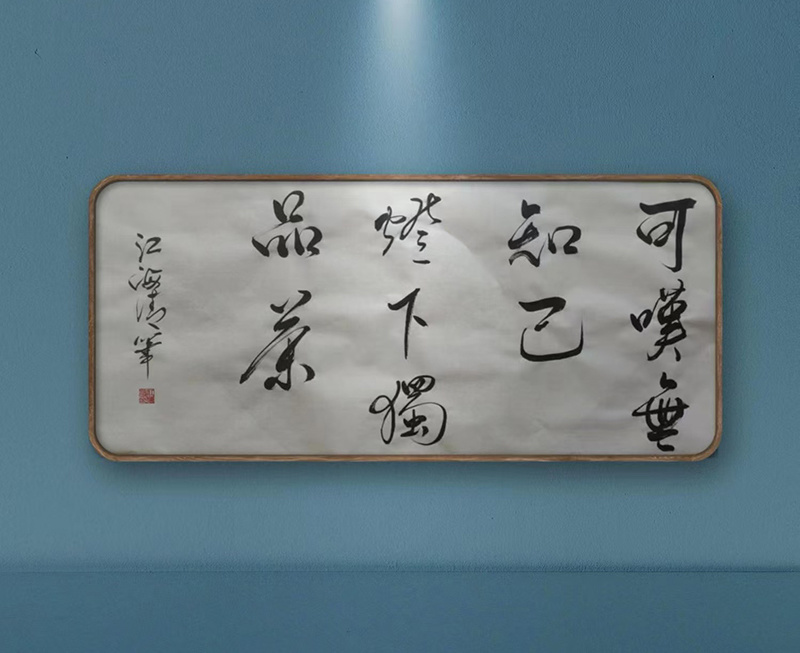 可嘆無
知己
燈下獨
品茶
江海清筆